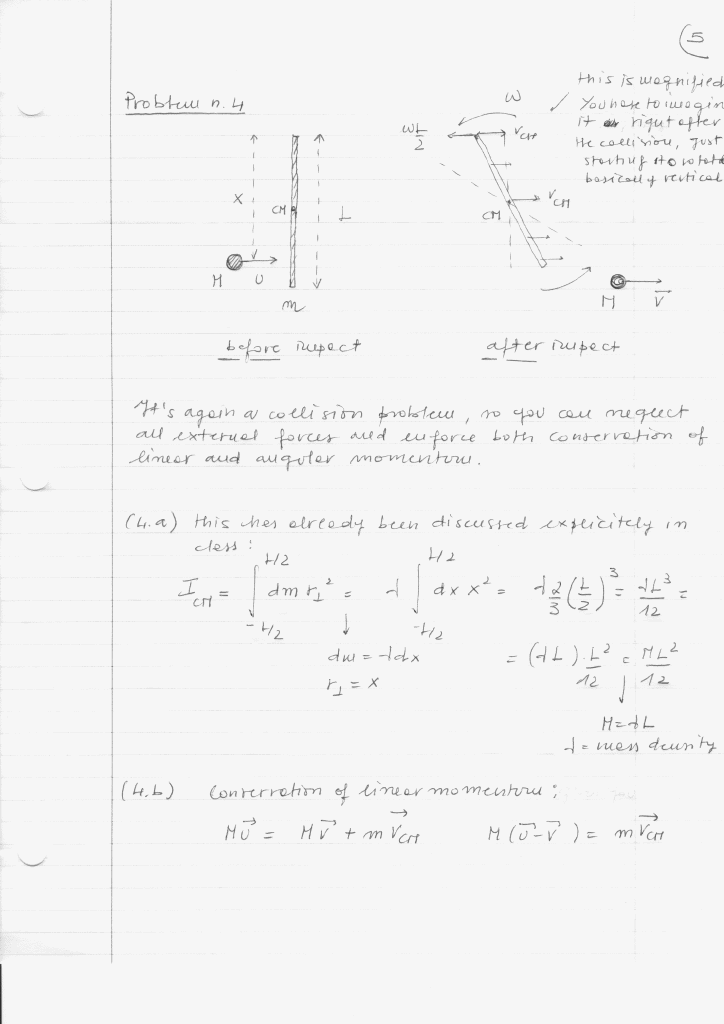 5
this is magnified
You have to imagin
it right after
the collision, just
starting to rotate
basically vertical
Problem n. 4
ω
ωL/2
V_CM
X
CM
L
V_CM
CM
M
U
m
M
V
before impact
after impact
It's again a collision problem, so you can neglect
all external forces and enforce both conservation of
linear and angular momentum.
(4.a) this has already been discussed explicitely in
class:
I_CM = ∫_{-L/2}^{L/2} dm r⊥² = λ ∫_{-L/2}^{L/2} dx x² = λ 2/3 (L/2)³ = λL³/12 =
dm = λdx
r⊥ = x
= (λL) · L²/12 = ML²/12
M = λL
λ = mass density
(4.b) Conservation of linear momentum:
MU⃗ = MV⃗ + mV⃗_CM M(U⃗ - V⃗) = mV⃗_CM